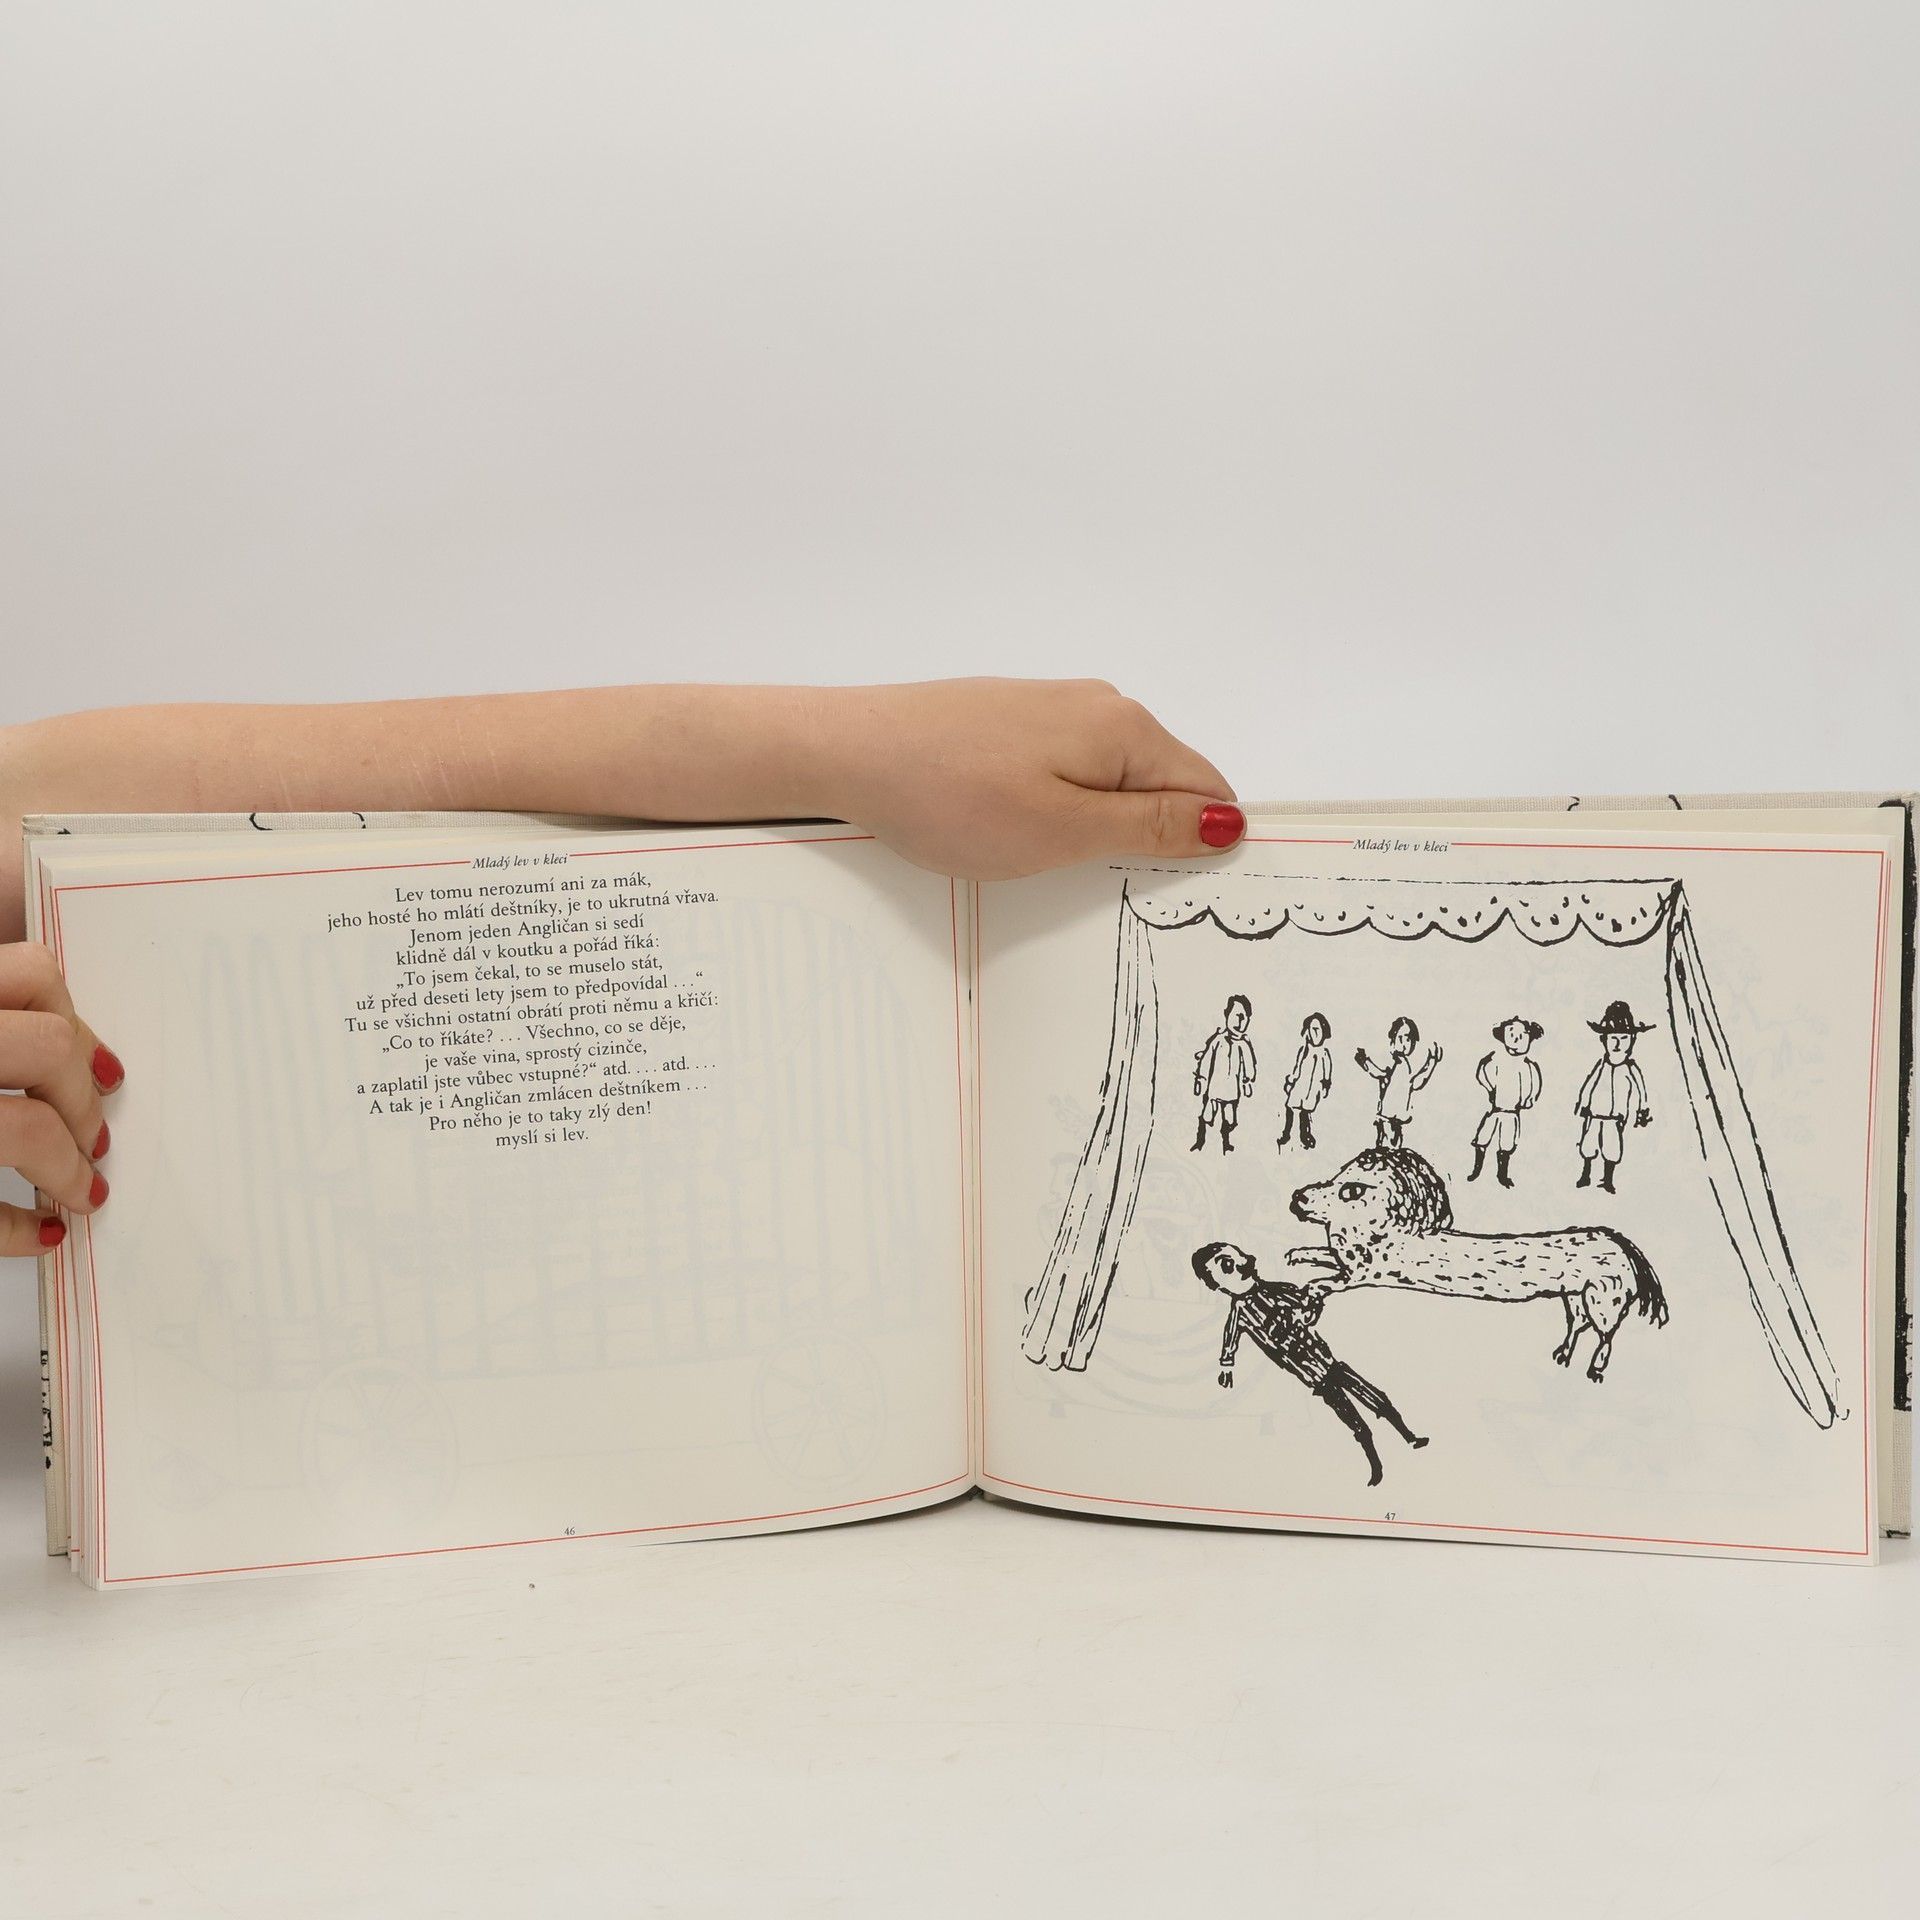 Mladý lev v kleci
Lev tomu nerozumí ani za mák,
jeho hosté ho mlátí deštníky, je to ukrutná vřava.
Jenom jeden Angličan si sedí
klidně dál v koutku a pořád říká:
„To jsem čekal, to se muselo stát,
už před deseti lety jsem to předpovídal . . .“
Tu se všichni ostatní obrátí proti němu a křičí:
„Co to říkáte? . . . Všechno, co se děje,
je vaše vina, sprostý cizinče,
a zaplatil jste vůbec vstupné?“ atd. . . . atd. . . .
A tak je i Angličan zmlácen deštníkem . . .
Pro něho je to taky zlý den!
myslí si lev.
46
Mladý lev v kleci
47